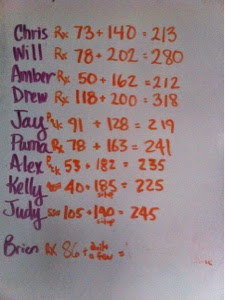 Chris Rx 73 + 140 = 213
Will Rx 78 + 202 = 280
Amber Rx 50 + 162 = 212
Drew Rx 118 + 200 = 318
Jay Rx 91 + 128 = 219
Puma Rx 78 + 163 = 241
Alex Rx 53 + 182 = 235
Kelly 40 + 185 = 225
Judy 105 + 140 = 245
Brien Rx 86 + quite a few =